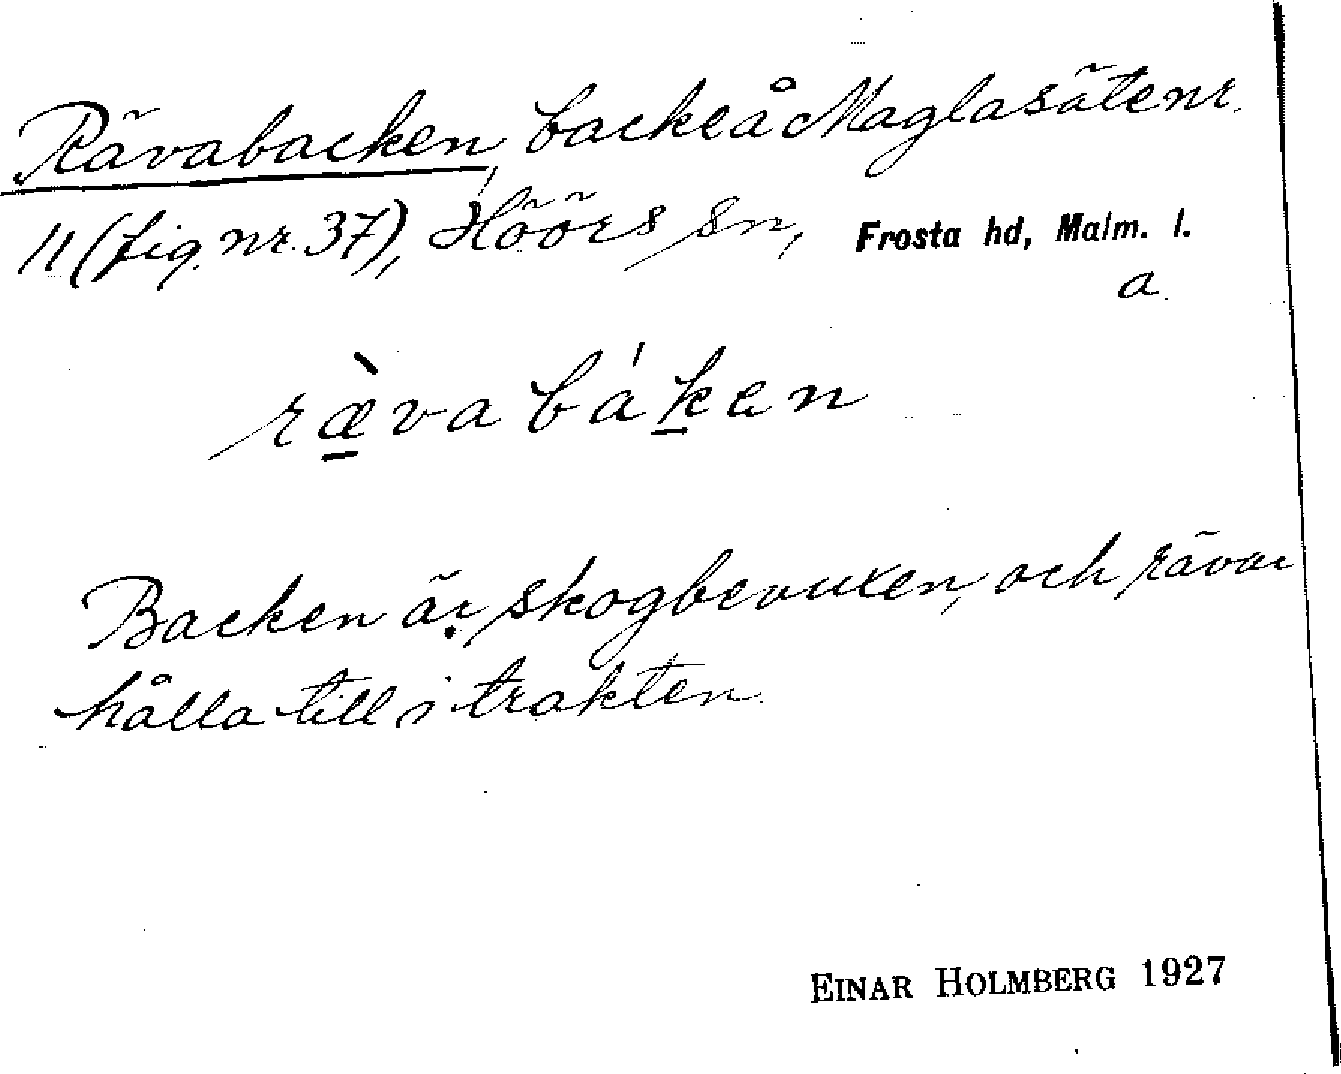 Rävabacken, backe å Maglasäte nr.
11 (fig. nr. 37), Höörs sn, Frosta hd, Malm. l.
a.
ræ̀vabáken
Backen är skogbevuxen, och rävar
hålla till i trakten.
EINAR HOLMBERG 1927